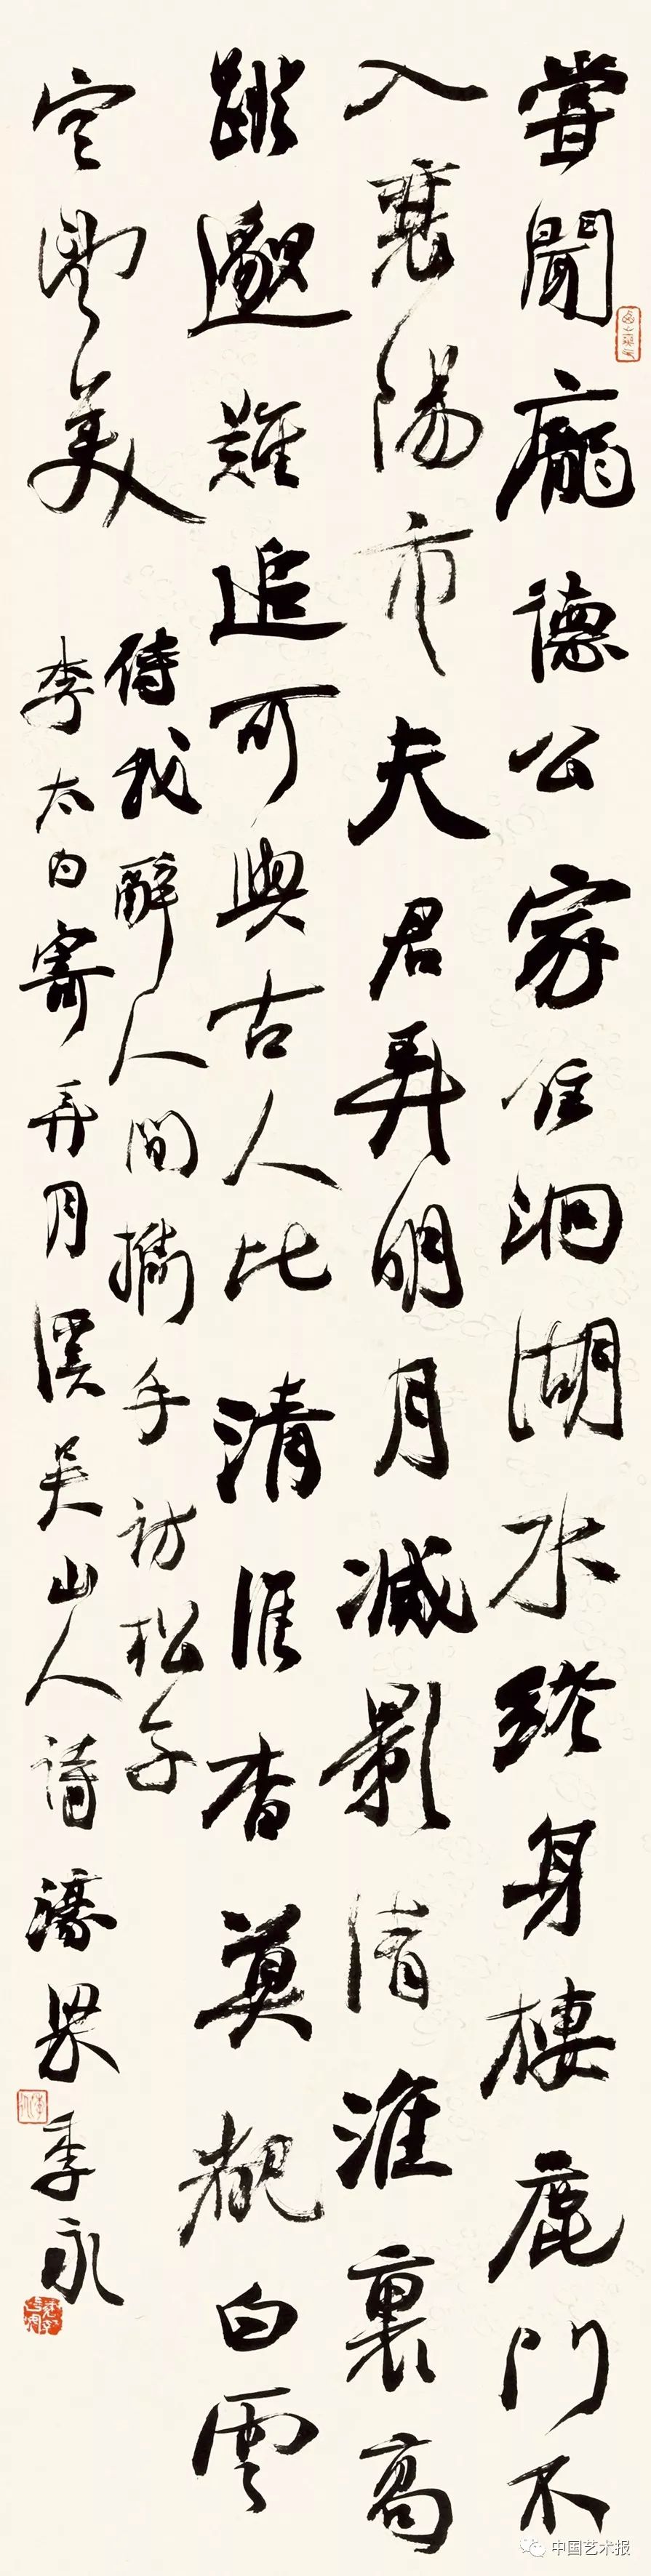 嘗聞龐德公家住洄湖水終身棲鹿門不
入襄陽市夫君弄明月滅影清淮裏高
蹤邈難追可與古人比清杳莫覩白雲
空望美
待我辭人間攜手訪松子
李太白寄弄月溪吳山人詩濠梁季永
中国艺术报